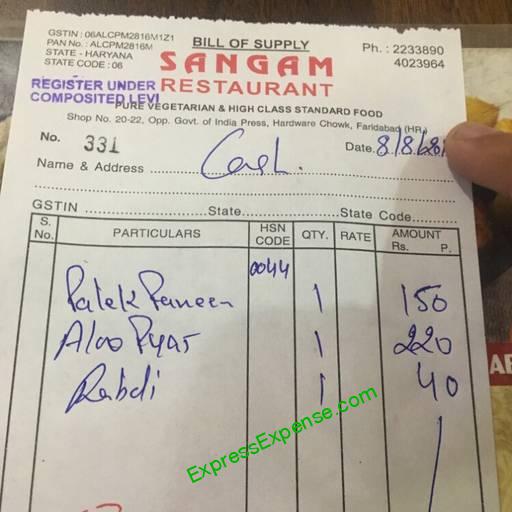 GSTIN : 06ALCPM2816M1Z1
PAN No. : ALCPM2816M
STATE - HARYANA
STATE CODE : 06
BILL OF SUPPLY
Ph. : 2233890
4023964
SANGAM
RESTAURANT
REGISTER UNDER
COMPOSITED LEVI
PURE VEGETARIAN & HIGH CLASS STANDARD FOOD
Shop No. 20-22, Opp. Govt. of India Press, Hardware Chowk, Faridabad (HR.)
No. 331
Cash.
Date. 8/8/201
Name & Address
GSTIN State State Code
S. No. PARTICULARS HSN CODE QTY. RATE AMOUNT Rs. P.
0044
Palek Paneer 1 150
Aloo Pyaz 1 220
Rabdi 1 40
ExpressExpense.com